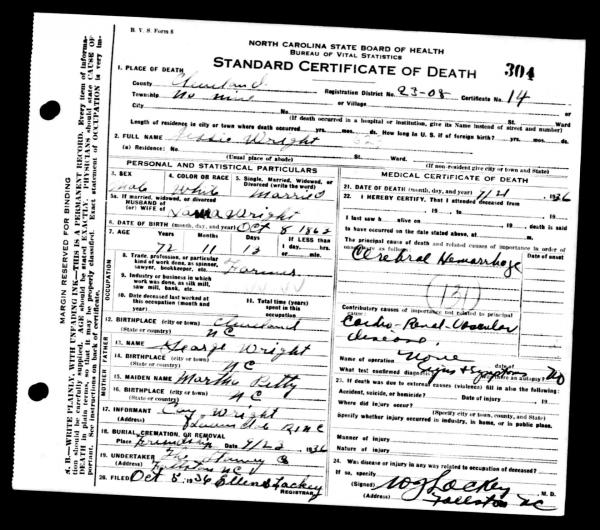 B. V. S. Form 8
NORTH CAROLINA STATE BOARD OF HEALTH
BUREAU OF VITAL STATISTICS
STANDARD CERTIFICATE OF DEATH 304
1. PLACE OF DEATH
County Cleveland Registration District No. 23-08 Certificate No. 14
Township No. nine or Village
City No. St. Ward
(If death occurred in a hospital or institution, give its Name instead of street and number)
Length of residence in city or town where death occurred yrs. mos. ds. How long in U. S. if of foreign birth? yrs. mos. ds.
2. FULL NAME Wright
(a) Residence: No. St. Ward
(Usual place of abode) (If non-resident give city or town and State)
PERSONAL AND STATISTICAL PARTICULARS
3. SEX male
4. COLOR OR RACE White
5. Single, Married, Widowed, or Divorced (write the word) Married
5a. If married, widowed, or divorced
HUSBAND of
(or) WIFE of Wright
6. DATE OF BIRTH (month, day, and year) Oct 8 1862
7. AGE Years Months Days If LESS than
1 day, hrs.
or min.
72 11 13
OCCUPATION
8. Trade, profession, or particular
kind of work done, as spinner,
sawyer, bookkeeper, etc. Farmer
9. Industry or business in which
work was done, as silk mill,
saw mill, bank, etc.
10. Date deceased last worked at
this occupation (month and
year)
11. Total time (years)
spent in this
occupation
12. BIRTHPLACE (city or town) Cleveland
(State or country) NC
FATHER
13. NAME George Wright
14. BIRTHPLACE (city or town)
(State or country) NC
MOTHER
15. MAIDEN NAME Martha Petty
16. BIRTHPLACE (city or town)
(State or country) NC
17. INFORMANT Wright
(Address) R1 NC
18. BURIAL, CREMATION, OR REMOVAL
Place Friendship Date 9/22 1936
19. UNDERTAKER
(Address) Fallston NC
20. FILED Oct 8, 1936 Ellen Lackey
REGISTRAR
MEDICAL CERTIFICATE OF DEATH
21. DATE OF DEATH (month, day, and year) 9/21 1936
22. I HEREBY CERTIFY, That I attended deceased from
, 19 , to , 19
I last saw h alive on , 19 , death is said
to have occurred on the date stated above, at m.
The principal cause of death and related causes of importance in order of
onset were as follows: Date of onset
Cerebral Hemorrhage
(131)
Contributory causes of importance not related to principal
cause:
Cardio-Renal-Vascular
disease.
Name of operation None date of
What test confirmed diagnosis? Signs & Symptoms Was there an autopsy? No
23. If death was due to external causes (violence) fill in also the following:
Accident, suicide, or homicide? Date of injury , 19
Where did injury occur?
(Specify city or town, county, and State)
Specify whether injury occurred in industry, in home, or in public place.
Manner of injury
Nature of injury
24. Was disease or injury in any way related to occupation of deceased?
If so, specify
(Signed) W G Lackey , M. D.
(Address) Fallston NC
MARGIN RESERVED FOR BINDING
N. B.—WRITE PLAINLY, WITH UNFADING INK—THIS IS A PERMANENT RECORD. Every item of information should be carefully supplied. AGE should be stated EXACTLY. PHYSICIANS should state CAUSE OF DEATH in plain terms, so that it may be properly classified. Exact statement of OCCUPATION is very important. See instructions on back of certificate.